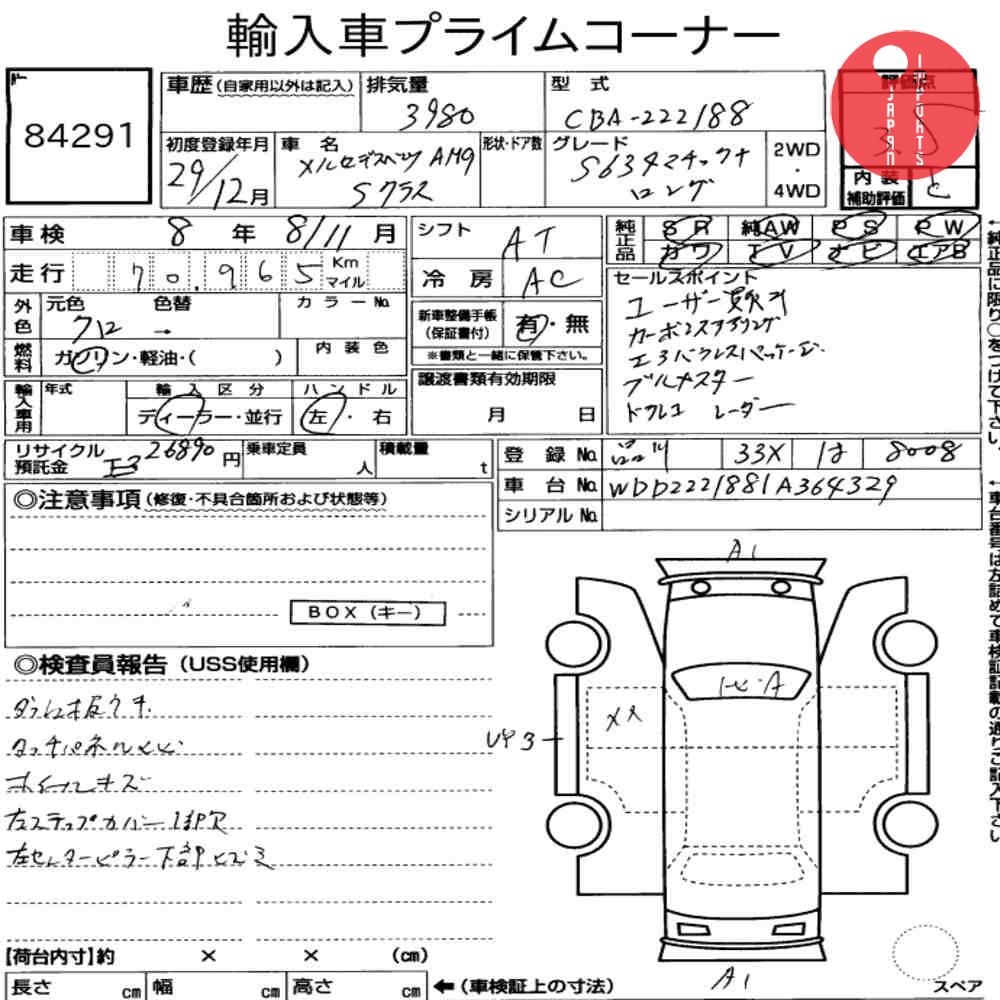 輸入車プライムコーナー
84291
車歴(自家用以外は記入) 排気量 3980 型式 CBA-222188
評価点 3.5
JAPAN IMPORTS
初度登録年月 29/12月 車名 メルセデスベンツ AMG Sクラス 形状・ドア数 グレード S63 4マチック ロング 2WD・4WD
内装補助評価 C
車検 8年 8/11月
シフト AT
純正品 SR 純AW PS PW
カワ TV ナビ エアB
走行 70,965 Km マイル
冷房 AC
外色 元色 クロ 色替 → カラーNo.
新車整備手帳(保証書付) 有・無
※書類と一緒に保管下さい。
燃料 ガソリン・軽油・( ) 内装色
セールスポイント
ユーザー買取り
カーボンスプリング
ブルメスター
ドラレコ レーダー
輸入車用 年式 輸入区分 ディーラー・並行 ハンドル 左・右
譲渡書類有効期限 月 日
リサイクル預託金 26890円 乗車定員 人 積載量 t
登録No. 品川 33X は 8008
車台No. WDD2221881A364329
シリアルNo.
◎注意事項(修復・不具合箇所および状態等)
BOX(キー)
◎検査員報告(USS使用欄)
タッチパネル
ホイールキズ
左ステップカバー1部欠
左センターピラー下部ヒズミ
A1
A
XX
U43
A1
【荷台内寸】約 × × (cm)
長さ cm 幅 cm 高さ cm ←(車検証上の寸法)
スペア
←純正品に限り○をつけて下さい。
←車台番号は左詰めで車検証記載の通りご記入下さい